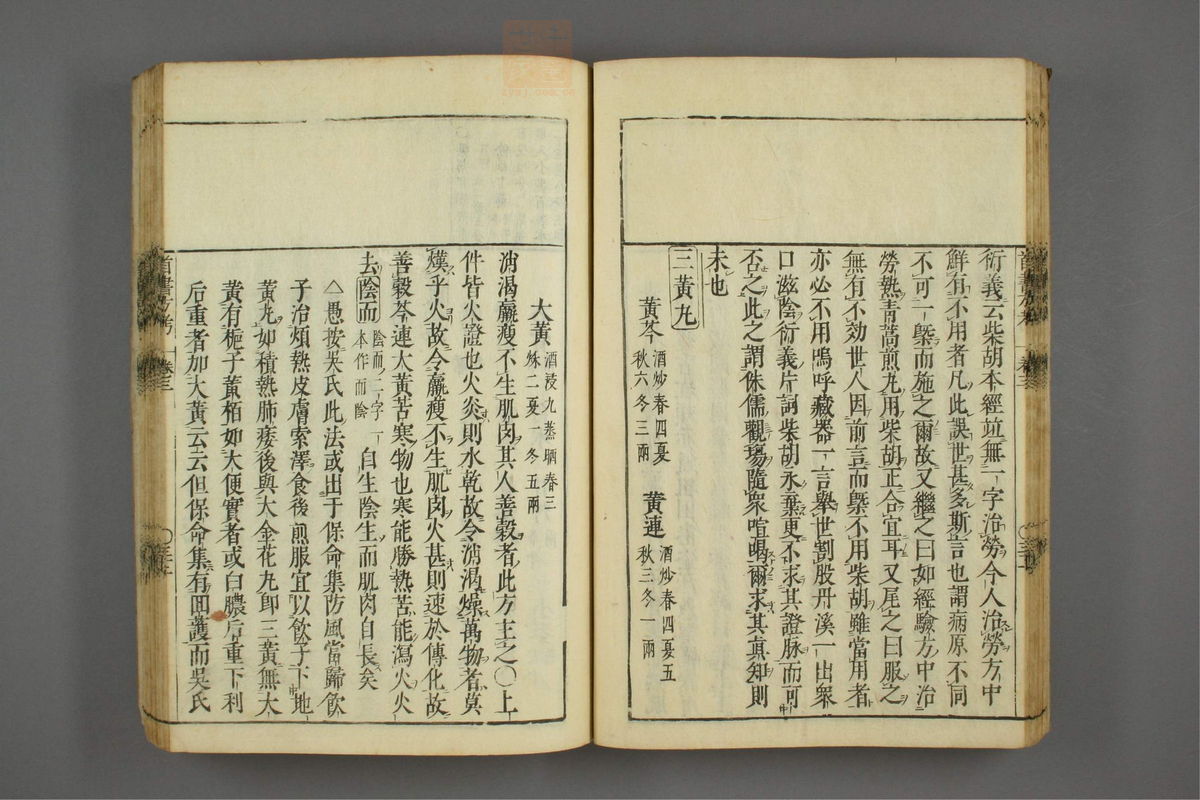 衍義云柴胡本經竝無一字治勞今人治勞方中
鮮有不用者凡此誤世甚多斯言也謂病原不同
不可一槩而施之爾故又繼之曰如經驗方中治
勞熱青蒿煎丸用柴胡正合宜耳又尾之曰服之
無有不効世人因前言而槩不用柴胡雖當用者
亦必不用嗚呼藏器一言舉世割股丹溪一出衆
口滋陰衍義片詞柴胡永棄更不求其證脉而可
否之此之謂侏儒觀場隨衆喧喝爾求其眞知則
未也
三黃丸
黃芩 酒炒春四夏
秋六冬三兩
黃連 酒炒春四夏五
秋三冬一兩
大黃 酒浸九蒸晒春三
秌二夏一冬五兩
消渴羸瘦不生肌肉其人善穀者此方主之○上
件皆火證也火炎則水乾故令消渴燥萬物者莫
熯乎火故令羸瘦不生肌肉火甚則速於傳化故
善穀芩連大黃苦寒物也寒能勝熱苦能瀉火火
去陰而 陰而二字一
本作而陰
自生陰生而肌肉自長矣
△愚按吳氏此法或出于保命集防風當歸飲
子治煩熱皮膚索澤食後煎服宜以飲子下地
黃丸如積熱肺痿後與大金花丸卽三黃無大
黃有梔子黃栢如大便實者或白膿后重下利
后重者加大黃云云但保命集有回護而吳氏
首書方考
卷三
首書方考
卷三